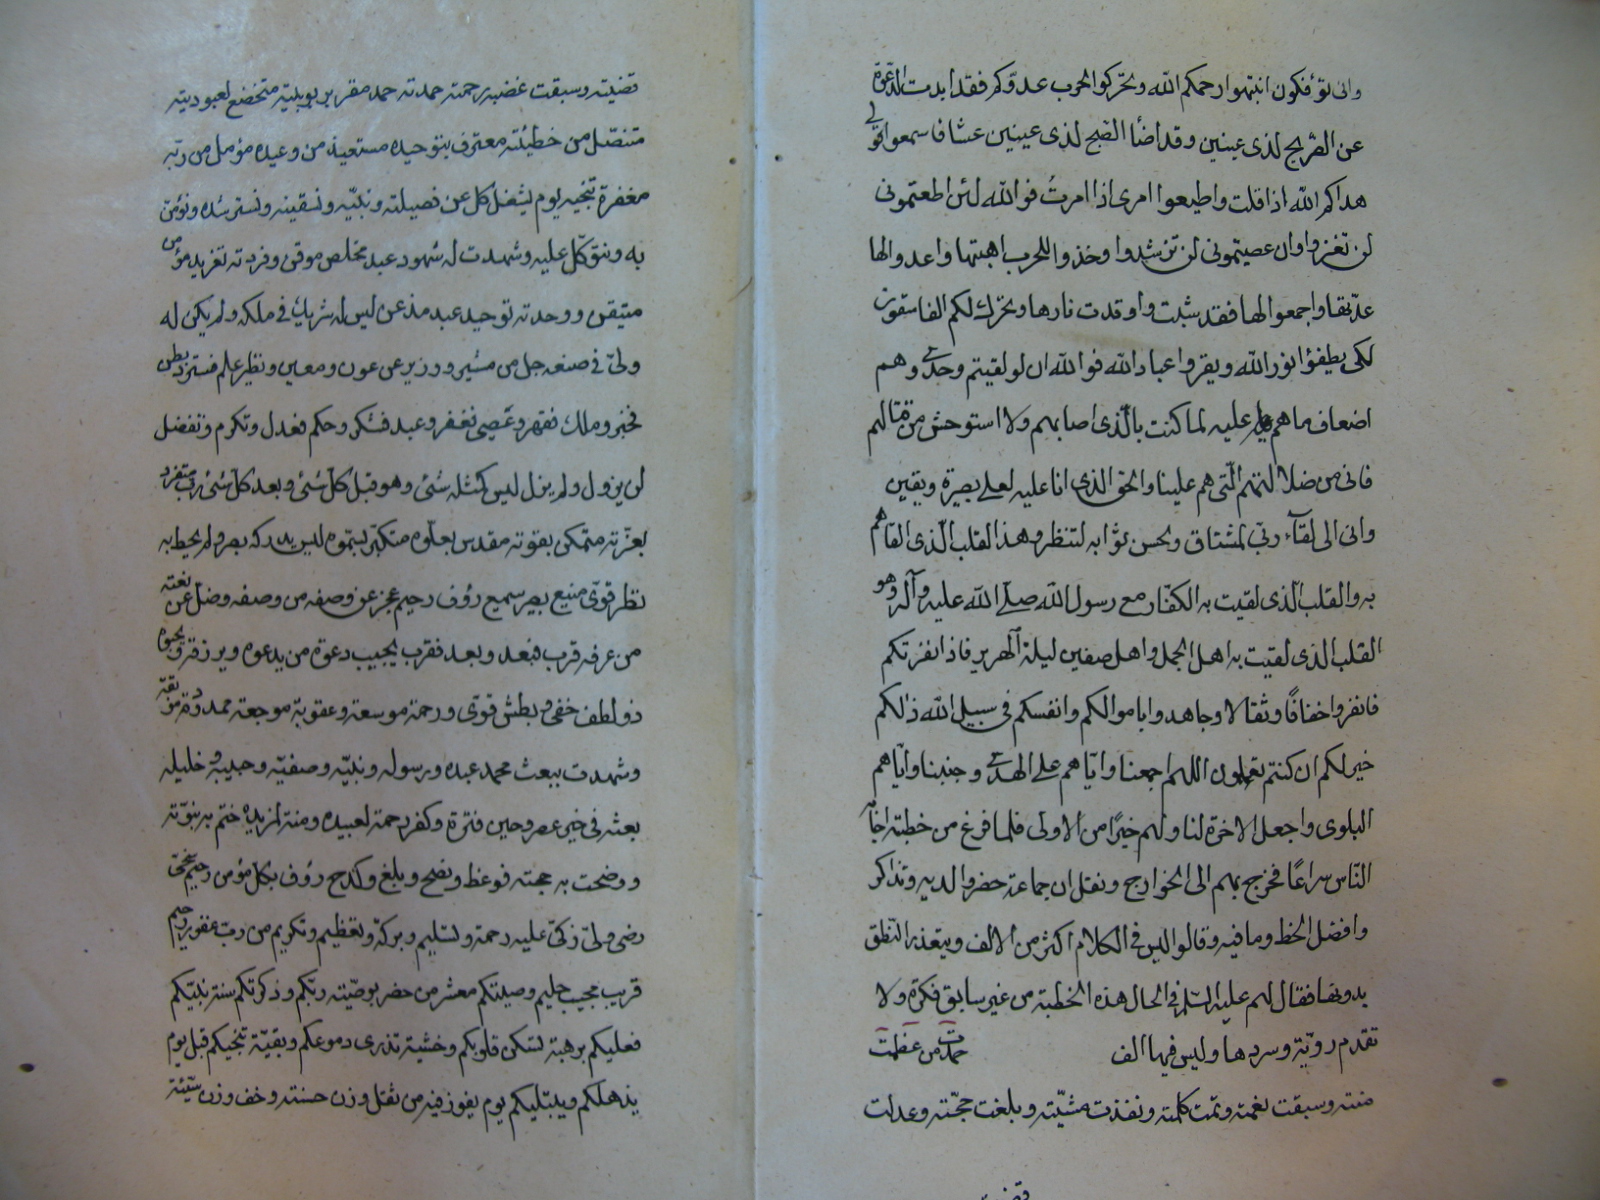 وانى تؤفكون انتبهوا رحمكم الله وتحركوا لحرب عدوكم فقد ابدت الدعوة
عن الصريح لذى عينين وقد اضا الصبح لذى عينين سمعوا قولى
هداكم الله اذا قلت واطيعوا امرى اذا امرت فوالله لئن اطعتمونى
لن تغزوا وان عصيتمونى لن ترشدوا وخذوا للحرب اهبتها واعدوا لها
عدتها واجمعوا لها فقد شبت واوقدت نارها وتحرك لكم الفاسقون
لكى يطفؤا نور الله ويقروا عباد الله فوالله ان لو لقيتم وحدى وهم
اضعاف ما هم عليه لما كنت بالذى اصابهم ولا استوحش من قتالهم
فانى من ضلالتهم التى هم علينا والحق الذى انا عليه لعلى بصيرة ويقين
وانى الى لقاء ربى لمشتاق ولحسن ثوابه لمنتظر وهذا القلب الذى القاهم
به والقلب الذى لقيت به الكفار مع رسول الله صلى الله عليه وآله وهو
القلب الذى لقيت به اهل الجمل واهل صفين ليلة الهرير فاذا نفرتكم
فانفروا خفافا وثقالا وجاهدوا باموالكم وانفسكم فى سبيل الله ذلكم
خير لكم ان كنتم تعلمون اللهم اجمعنا واياهم على الهدى وجنبنا واياهم
البلوى واجعل الاخرة لنا ولهم خيرا من الاولى فلما فرغ من خطبته اجابه
الناس سراعا فخرج بهم الى الخوارج ونقل ان جماعة حضروا لديه وتذاكر
وافضل الخط وما فيه وقالوا ليس فى الكلام اكثر من الالف ويتعذر النطق
بدونها فقال لهم عليه السلم فى الحال هذه الخطبة من غير سابق فكرة ولا
تقدم روية وسردها وليس فيها الف حمدت من عظمت
منته وسبقت نعمته وتمت كلمته ونفذت مشيته وبلغت حجته وعدلت
قضيته وسبقت غضبه رحمته حمدته حمد مقر بربوبيته متخضع لعبوديته
متنصل من خطيئته معترف بتوحيده مستعيذ من وعيده مؤمل من ربه
مغفرة تنجيه يوم يشغل كل عن فصيلته وبنيه ونستعينه ونسترشده ونؤمن
به ونتوكل عليه وشهدت له شهود عبد مخلص موقن وفردته تفريد مؤمن
متيقن ووحدته توحيد عبد مذعن ليس له شريك فى ملكه ولم يكن له
ولى فى صنعه جل من مشير ووزير عن عون ومعين ونظير علم فستر وبطن
فخبر وملك فقهر وعصى فغفر وعبد فشكر وحكم فعدل وتكرم وتفضل
لن يزول ولم يزل ليس كمثله شئ وهو قبل كل شئ وبعد كل شئ رب متفرد
بعزته متمكن بقوته مقدس بعلوه متكبر بسموه ليس يدركه بصر ولم يحط به
نظر قوى منيع بصير سميع رؤف رحيم عجز عن وصفه من وصفه وضل عن نعته
من عرفه قرب فبعد وبعد فقرب يجيب دعوة من يدعوه ويرزقه ويحبوه
ذو لطف خفى وبطش قوى ورحمة موسعة وعقوبة موجعة
وشهدت ببعث محمد عبده ورسوله ونبيه وصفيه وحبيبه وخليله
بعثه فى خير عصر وحين فترة وكفر رحمة لعبيده ومنة لمزيده ختم به نبوته
ووضحت به حجته فوعظ ونصح وبلغ وكدح رؤف بكل مؤمن رحيم سخى
رضى ولى زكى عليه رحمة وتسليم وبركة وتعظيم وتكريم من رب غفور رحيم
قريب مجيب حليم وصيتكم معشر من حضر بوصيته ربكم وذكرتكم سنة نبيكم
فعليكم برهبة تسكن قلوبكم وخشية تذرى دموعكم وبقية تنجيكم قبل يوم
يذهلكم ويبتليكم يوم يفوز فيه من ثقل وزن حسنته وخف وزن سيئته